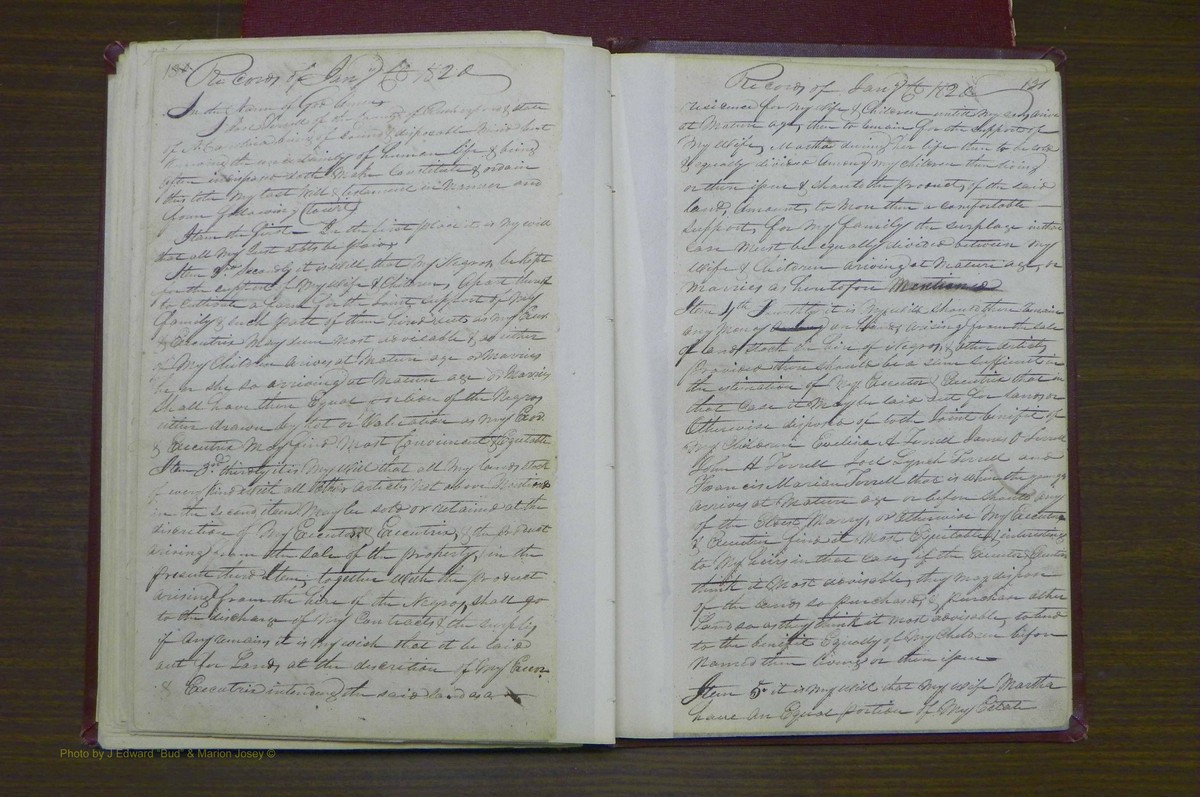 130 Records of Jany Co 1820
In the Name of God Amen
I Joel Terrell of the County of Rutherford & State
of N. Carolina being of Sound & disposable Mind but
Knowing the uncertainty of human life & being
often indisposed doth Make Constitute & ordain
this to be My last Will & testament in Manner and
form following (Towit)
Item the first In the first place it is My will
that all My Just debts be paid
Item 2nd Secondly it is Will that My Negroes be kept
for the Support of My Wife & Children, Apart thereof
to Cultivate a farm for the Joint Support of My
family & Such part of them hired out as My Exor
& Executrix May deem Most adviseable & as either
of My Children arives at Mature age or Marries
he or she so arriving at Mature age or Marries
Shall have their Equal portion of the Negroes
either drawn by lot or Valuation as My Exor
& Executrix May find Most Convenient & Equitable
Item 3rd thirdly it is My Will that all My land, Stock
of every kind with all other articles not above Mentioned
in the Second item May be sold or retained at the
discretion of My Executor & Executrix, & the product
arising from the Sale of the property in the
present third Item together with the product
arising from the hire of the Negroes, Shall go
to the discharge of My Contracts & the Surplus
if Any remains it is My wish that it be laid
out for Lands at the discretion of My Exor
& Executrix intending the said land as a
Records of Jany Co 1820 131
residence for My Wife & Children until they arive
at Mature age, then to remain for the Support of
My Wife, Martha during her life then to be sold
& equally divided among my children then living
or their issue & Should the Product, of the said
land, Amount, to More than a comfortable
Support, for My family the Surplage in that
Case Must be equally divided between My
Wife & Children arising at Mature age, or
Marries as heretofore Mentioned
Item 4th Fourthly it is My will Should there remain
any Money on Hand arising from the Sale
of land Stock or hire of Negroes & other Articles
Provided there should be a sum sufficient in
the estimation of My Executor & Executrix that in
that Case it May be laid out for lands or
Otherwise disposed of to the Joint benefit of
My Children Eveline A Terrell James O Terrell
John H Terrell Joel Lynch Terrell and
Francis Marian Terrell that is when the youngest
arrives at Mature age or before Should any
of the Eldest Marry, or Otherwise My Executor
& Executrix find it Most Equitable & interesting
to My heirs in that case, if the Executor & Executrix
think it Most advisable, they may dispose
of the lands so purchased, & purchase other
Land so as they think it most advisable, to tend
to the benefit Equally of My Children before
Named then living or their issue
Item 5th it is My Will that My Wife Martha
have An Equal portion of My Estate
Photo by J Edward "Bud" & Marion Josey ©